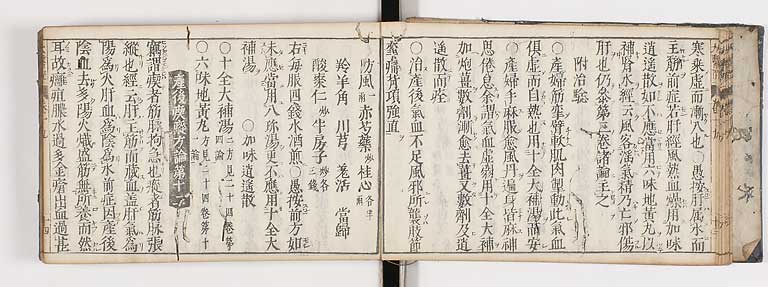 寒乘虛而漸八也〇愚按肝屬木而
主筋前症若肝經風熱血燥用加味
逍遙散如不應當用六味地黃丸以
補腎水經云風客淫氣精乃亡邪傷
肝也仍參第三卷諸論主之
附治驗
〇産婦筋攣臂軟肌肉掣動此氣血
俱虛而自熱也用十全大補湯而安
〇産婦手麻服愈風丹遍身皆麻神
思倦怠余謂氣血虛弱用十全大補
加炮薑數劑漸愈去薑又數劑及逍
遙散而痊
〇治産後氣血不足風邪所襲肢節
攣痛背項強直
防風一兩 赤芍藥炒 桂心各半兩
羚羊角 川芎 羗活 當歸
酸棗仁炒 牛房子炒各三錢
右每服四錢水酒煎〇愚按前方如
未應當用八珍湯更不應用十全大
補湯 〇加味逍遙散
〇十全大補湯二方見二十四卷第四論
〇六味地黃丸方見二十四卷第十論
産後瘈瘲方論第十一
竊謂瘈者筋脉拘急也瘲者筋脉張
縱也經云肝主筋而藏血盖肝氣為
陽為火肝血為陰為水前症因産後
陰血去多陽火熾盛筋無所養而然
耳故癰疽膿水過多金瘡出血過甚